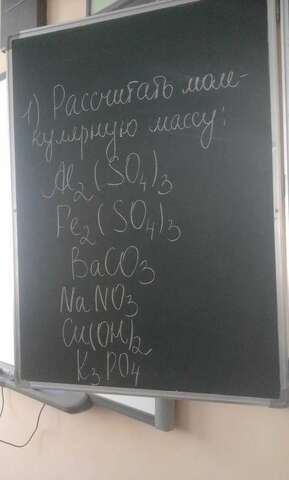 1) Рассчитать моле-
кулярную массу:
Al₂(SO₄)₃
Fe₂(SO₄)₃
BaCO₃
NaNO₃
Cu(OH)₂
K₃PO₄